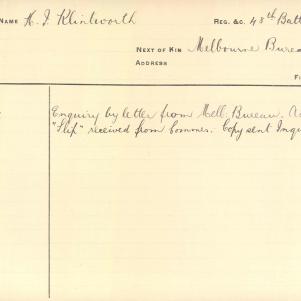 NAME H. J. Klintworth REG. &C. 43th Batt
NEXT OF KIN Melbourne Bureau
ADDRESS
Enquiry by letter from Melb. Bureau.
"Slip" received from Commrs. Copy sent Inqu